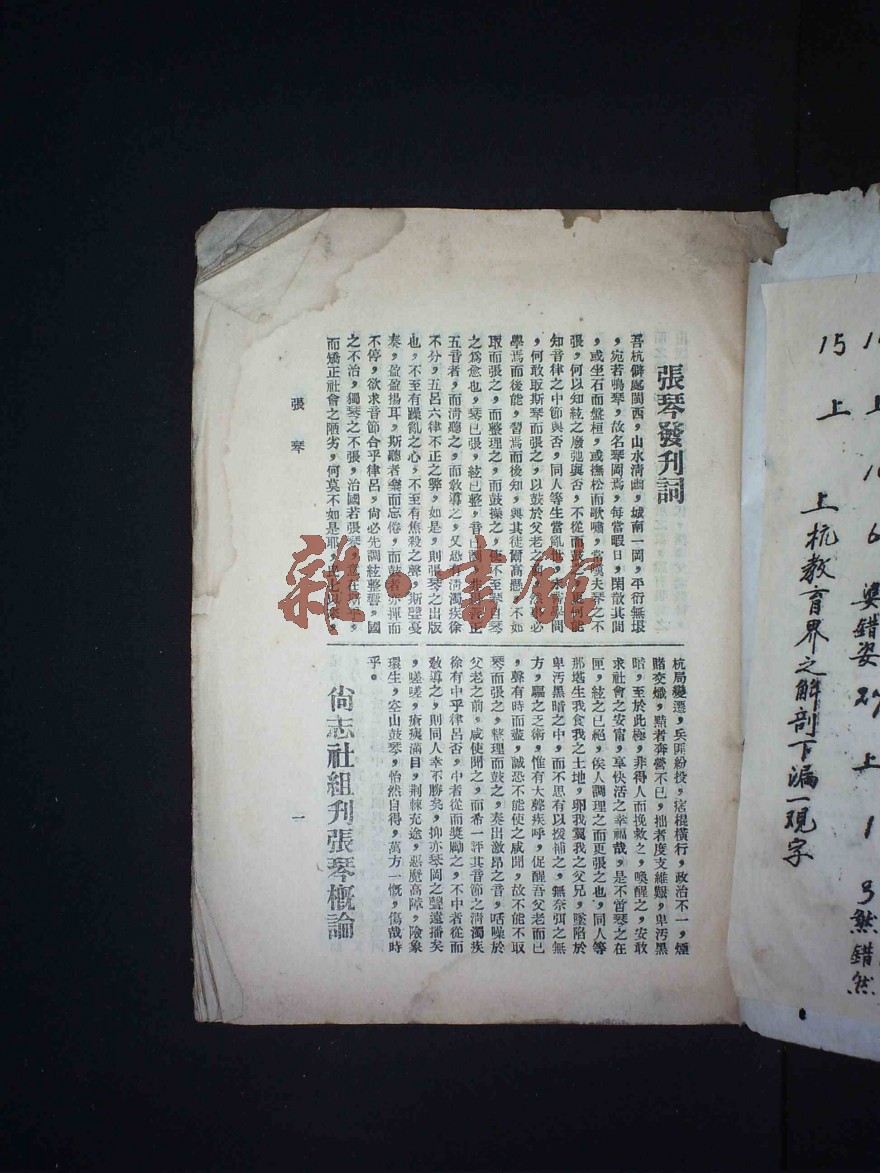 張琴發刊詞
吾杭僻處閩西，山水清幽，城南一岡，平衍無垠
，宛若鳴琴，故名琴岡焉，每當暇日，閑散其間
，或坐石而盤桓，或撫松而歌嘯，當嘆夫琴之不
張，何以知絃之廢弛與否，不從而鼓之，更何能
知音律之中節與否，同人等生當亂世，未嘗學問
，何敢取斯琴而張之，以鼓於父老之前，然事必
學焉而後能，習焉而後知，與其徒爾高懸，不如
取而張之，而整理之，而鼓操之，
之為愈也，琴已張，絃已整，音已調，
五音者，而清聽之，而敎導之，又恐有清濁疾徐
不分，五呂六律不正之弊，如是，則張琴之出版
也，不至有躁亂之心，不至有焦殺之聲，斯聲戞
奏，盈盈揚耳，斯聽者樂而忘倦，而鼓者亦揮而
不停，欲求音節合乎律呂，尙必先調絃整響，國
之不治，獨琴之不張，治國若張琴，
而矯正社會之陋劣，何莫不如是耶，
杭局變遷，兵匪紛投，痞棍橫行，政治不一，煙
賭交熾，黠者奔營不已，拙者度支維艱，卑汚黑
暗，至於此極，非得人而挽救之，喚醒之，安敢
求社會之安甯，享快活之幸福哉，是不啻琴之在
匣，絃之已絕，俟人調理之而更張之也，同人等
那堪生我食我之土地，卵我翼我之父兄，墜陷於
卑汚黑暗之中，而不思有以援補之，無奈弭之無
方，驅之乏術，惟有大聲疾呼，促醒吾父老而已
，聲有時而盡，誠恐不能使之咸聞，故不能不取
琴而張之，整理而鼓之，奏出激昂之音，咶噪於
父老之前，咸使聞之，而希一評其音節之清濁疾
徐有中乎律呂否，中者從而奬勵之，不中者從而
敎導之，則同人幸不勝矣，抑亦琴岡之聲遠播矣
，嗟嗟，瘡痍滿目，荆棘充途，惡魔高障，險象
環生，空山鼓琴，怡然自得，萬方一慨，傷哉時
乎。
尙志社組刊張琴概論
張琴
一
上 6 奠錯姿 27 上 1 3 然錯然
15 上 上杭教育界之解剖下漏一现字